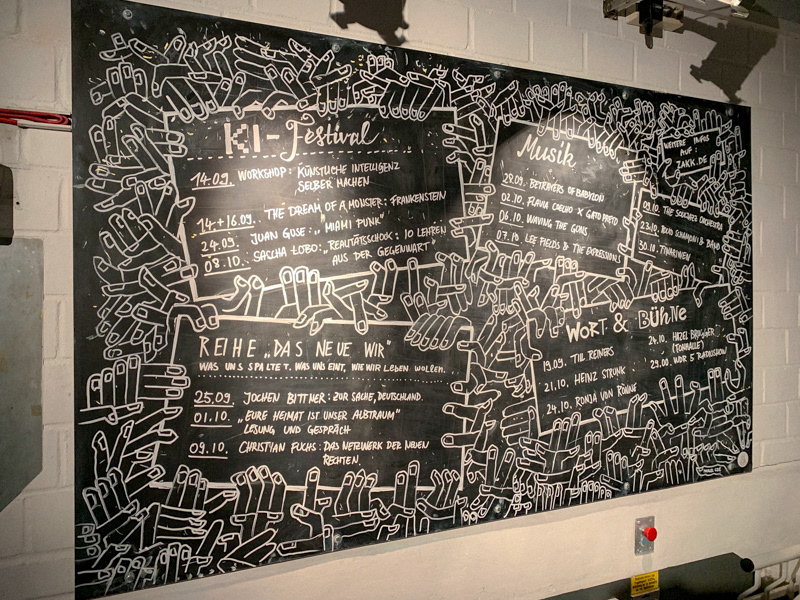 KI-Festival
14.09. WORKSHOP: KÜNSTLICHE INTELLIGENZ
SELBER MACHEN
14.+16.09. THE DREAM OF A MONSTER: FRANKENSTEIN
24.09. JUAN GUSE: „MIAMI PUNK"
08.10. SASCHA LOBO: „REALITÄTSSCHOCK: 10 LEHREN
AUS DER GEGENWART"
Musik
29.09. BETRAYERS OF BABYLON
02.10. FLAVIA COELHO X GATO PRETO
06.10. WAVING THE GUNS
07.10. LEE FIELDS & THE EXPRESSIONS
WEITERE INFOS
AUF:
ZAKK.DE
09.10. THE SOUCHER ORCHESTRA
23.10. BOJO SCHAMONI & BAND
30.10. TINARIWEN
REIHE „DAS NEUE WIR"
WAS UNS SPALTET, WAS UNS EINT, WIE WIR LEBEN WOLLEN.
25.09. JOCHEN BITTNER: ZUR SACHE, DEUTSCHLAND.
01.10. „EURE HEIMAT IST UNSER ALBTRAUM"
LESUNG UND GESPRÄCH
09.10. CHRISTIAN FUCHS: DAS NETZWERK DER NEUEN
RECHTEN.
WORT & BÜHNE
19.09. TIL REINERS
21.10. HEINZ STRUNK
24.10. RONJA VON RÖNNE
24.10. HAZEL BRUGGER
(TONHALLE)
29.00. WDR 5 RADIOSHOW